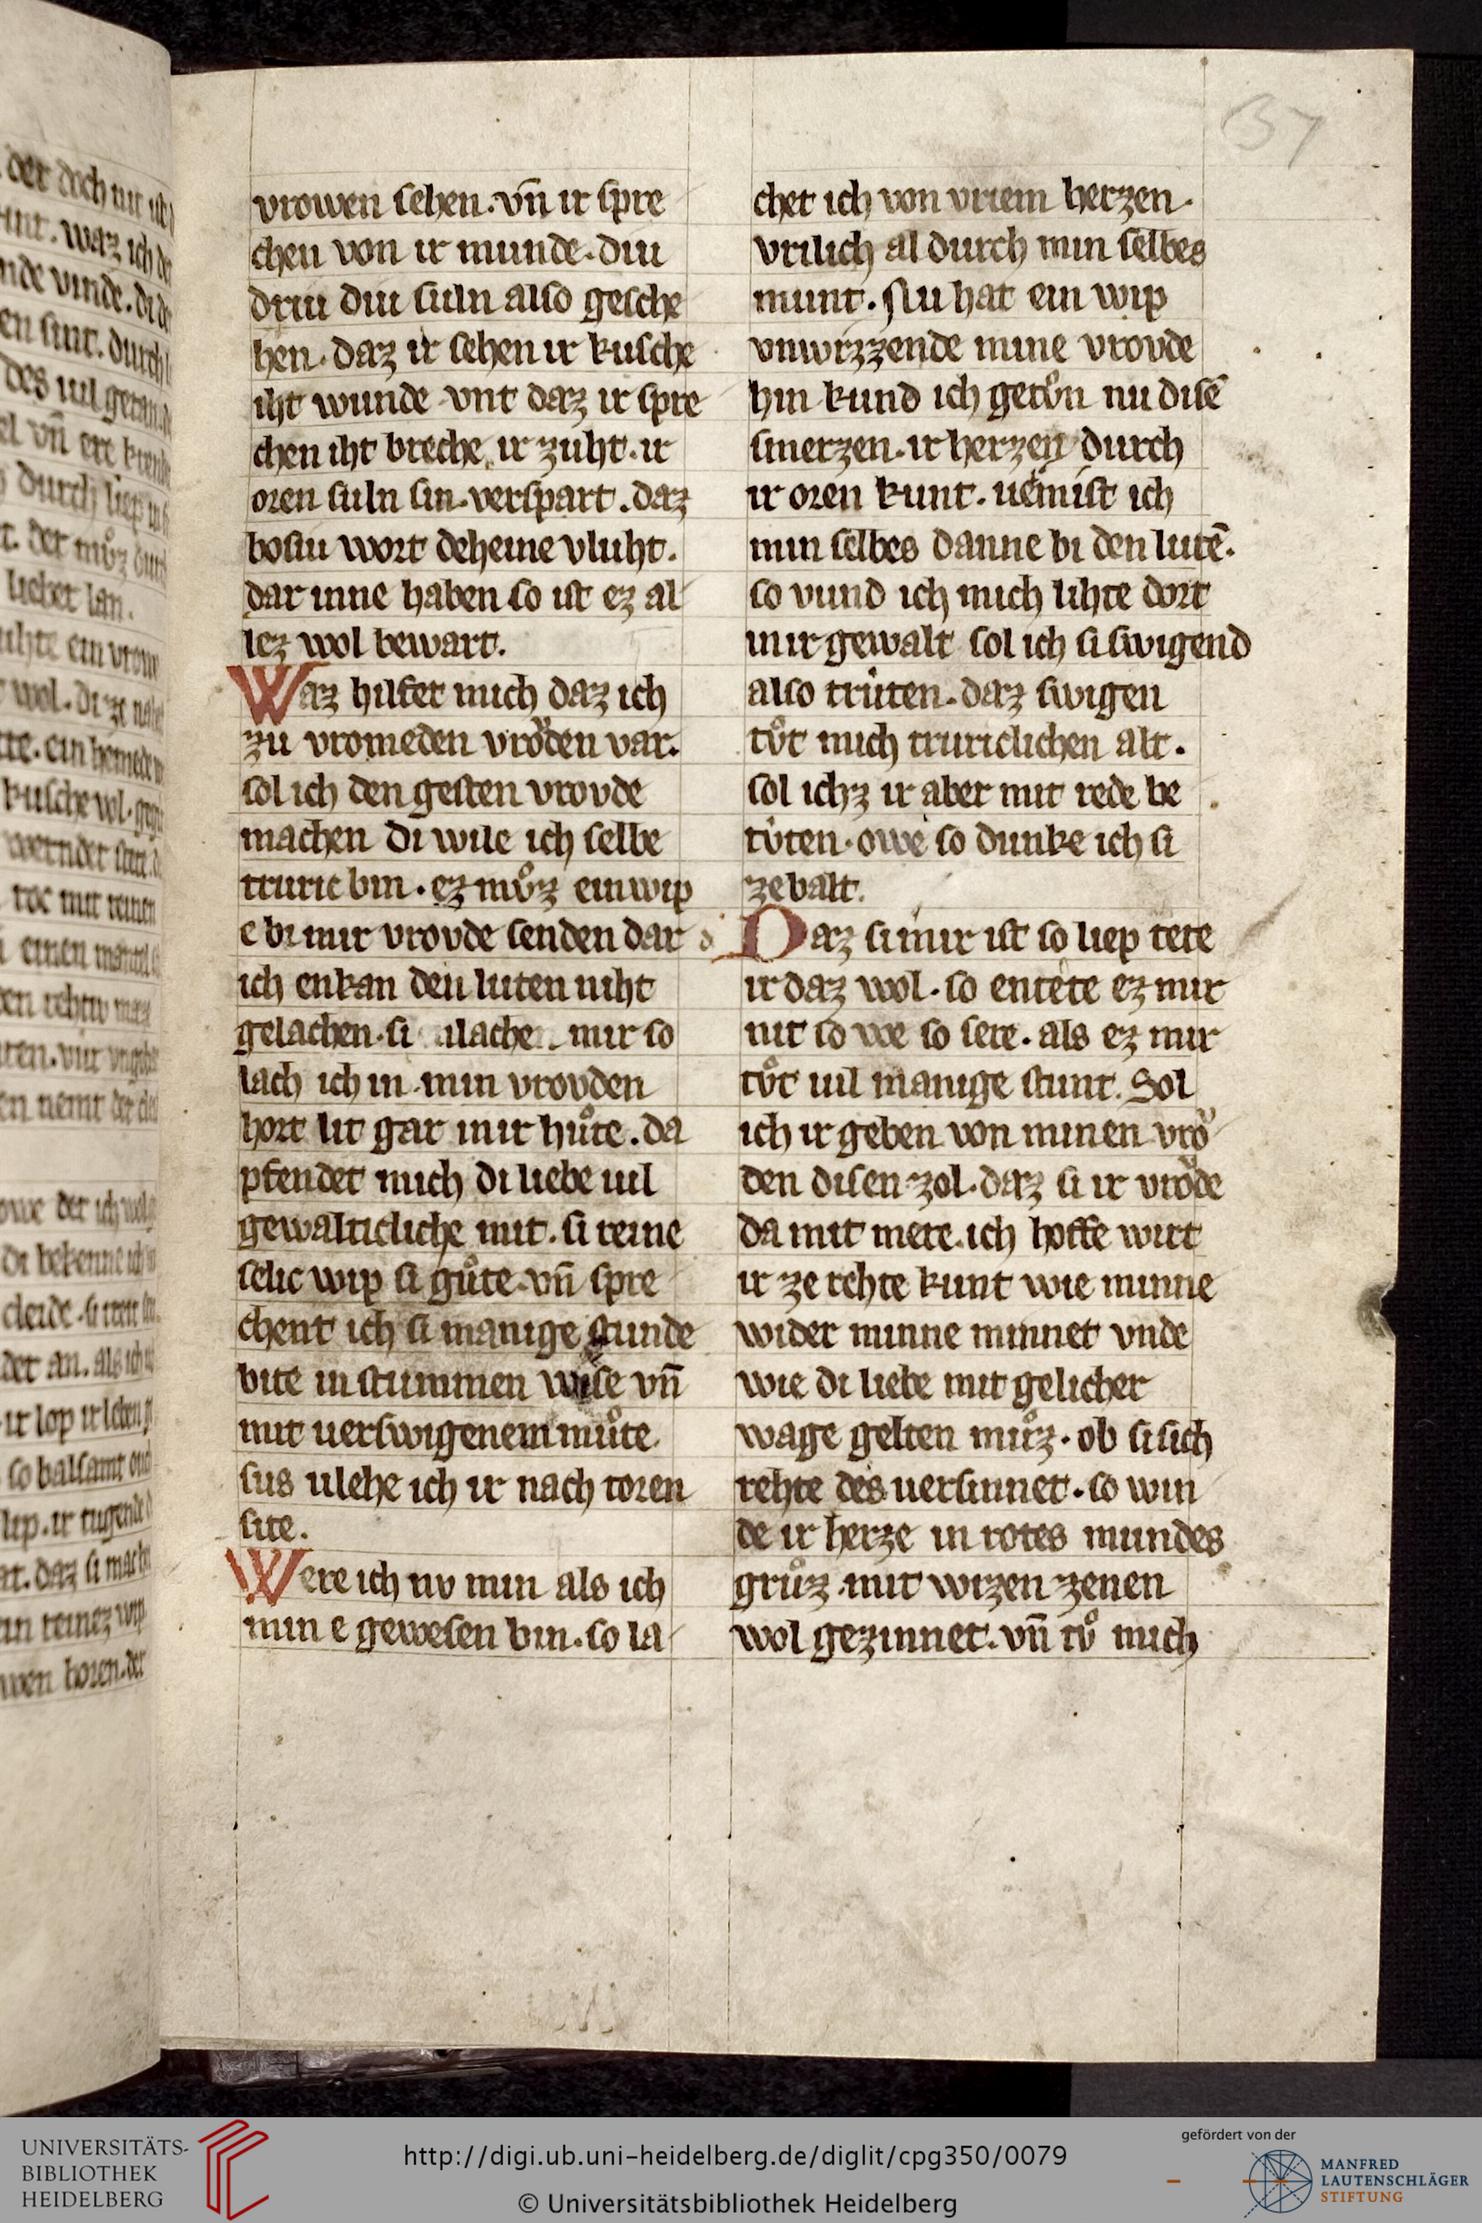 vrowen sehen. vn̄ ir spre
chen von ir munde. diu
driu diu suln also gesche
hen. daz ir sehen ir kusche
iht wunde vnt daz ir spre
chen iht breche ir zuht. ir
oren suln sin. verspart. daz
bosiu wort deheine vluht.
dar inne haben so ist ez al
lez wol bewart.
Waz hilfet mich daz ich
zu vromeden vroͮden var.
sol ich den gesten vrovde
machen di wile ich selbe
truric bin. ez mvͦz ein wip
e bi mir vrovde senden dar
ich enkan den luten niht
gelachen. si lache mir so
lach ich in. min vrovden
hort lit gar in ir huͦte. da
pfendet mich di liebe uil
gewalticliche mit. si reine
selic wip si guͦte. vn̄ spre
chent ich si manige stunde
bite in stummen wise vn̄
mit uerswigenem muͦte.
sus vlehe ich ir nach toren
site.
Were ich nv min als ich
min e gewesen bin. so la
chet ich von vriem herzen.
vrilich al durch min selbes
munt. Nu hat ein wip
vnwizzende mine vrovde
hin kund ich getoͮn nu disē
smerzen. ir herzen durch
ir oren kunt. uēmist ich
min selbes danne bi den lutē.
so vund ich mich lihte dort
in ir gewalt sol ich si swigend
also truten. daz swigen
tvͦt mich truriclichen alt.
sol ichz ir aber mit rede be
tvten. owe so dunke ich si
ze balt.
Daz si mir ist so liep tete
ir daz wol. so entete ez mir
nit so we so sere. als ez mir
tvͦt uil manige stunt. Sol
ich ir geben von minen vroͮ
den disen zol. daz si ir vroͮde
da mit mere. ich hoffe wirt
ir ze rehte kunt wie minne
wider minne minnet vnde
wie di liebe mit gelicher
wage gelten muͦz. ob si sich
rehte des uersinnet. so win
de ir herze in rotes mundes
gruͦz mit wizen zenen
wol gezinnet. vn̄ tvͦ mich
37
UNIVERSITÄTS-
BIBLIOTHEK
HEIDELBERG
http://digi.ub.uni-heidelberg.de/diglit/cpg350/0079
© Universitätsbibliothek Heidelberg
gefördert von der
MANFRED
LAUTENSCHLÄGER
STIFTUNG